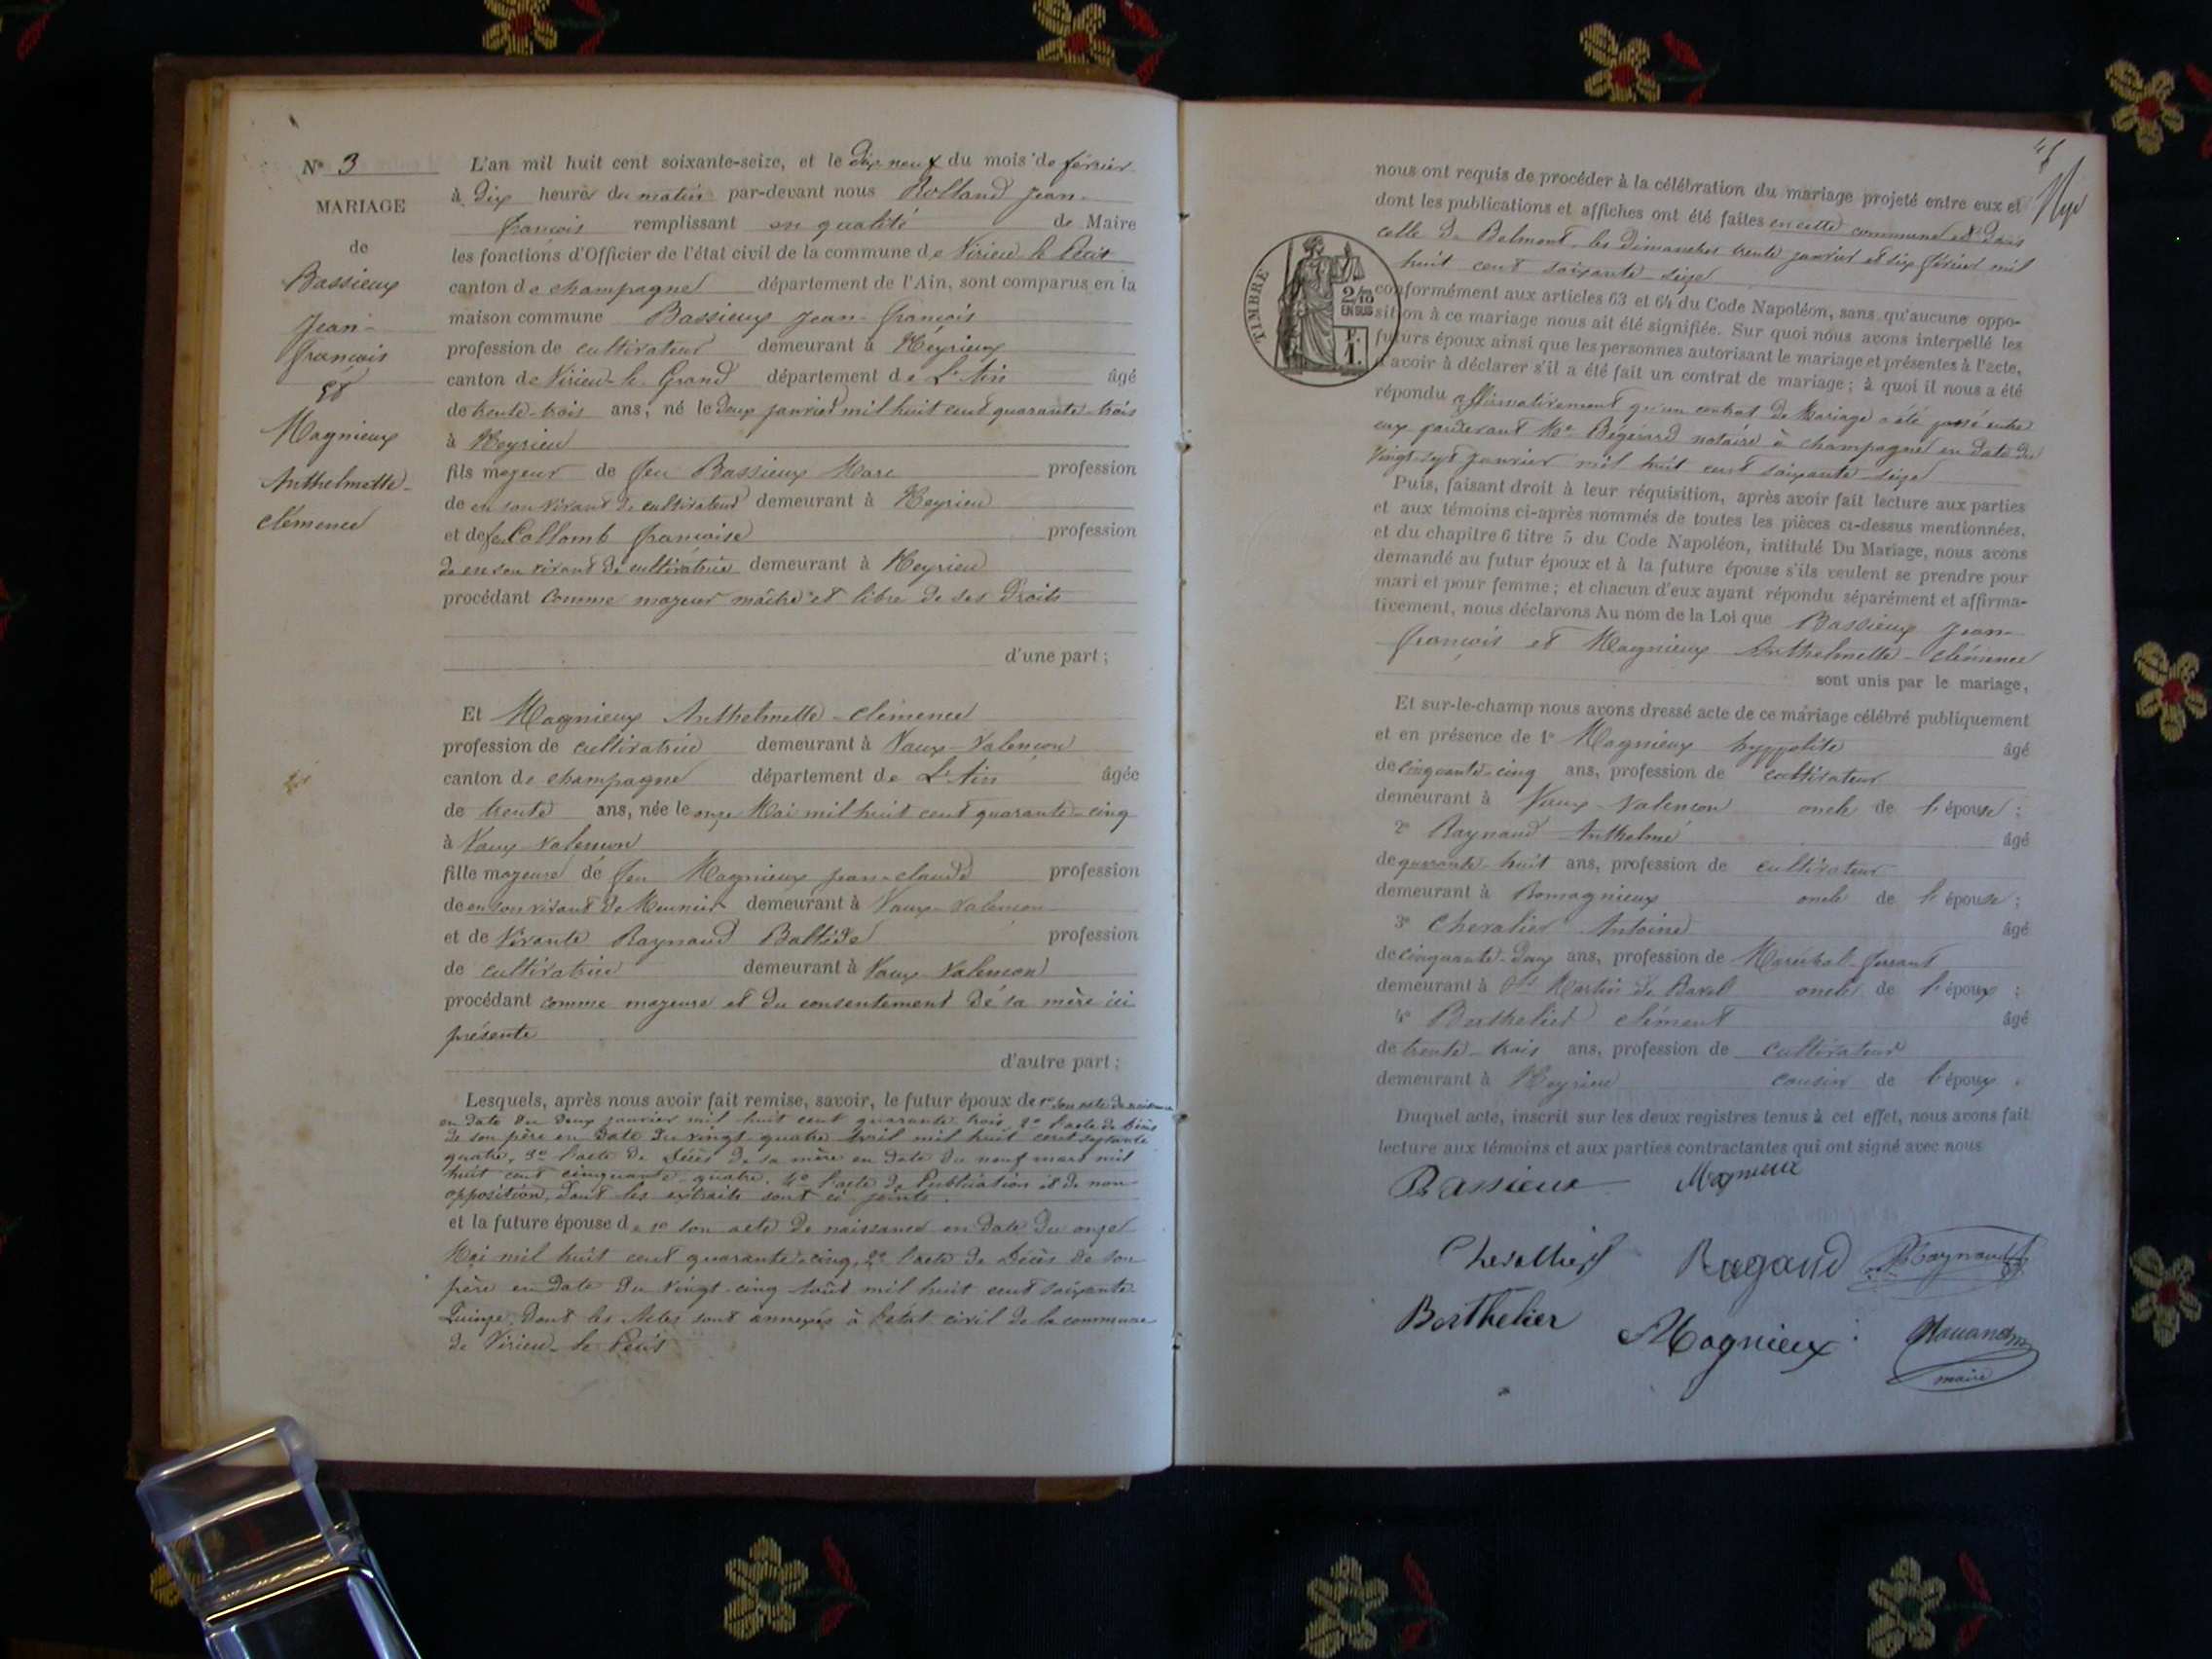 N° 3
MARIAGE
de
Bassieux
Jean-
françois
et
Magnieux
Anthelmette-
clémence
L'an mil huit cent soixante-seize, et le dix neuf du mois de février
à dix heures du matin par-devant nous Rolland Jean-
françois remplissant en qualité de Maire
les fonctions d'Officier de l'état civil de la commune de Virieu le Petit
canton de champagne département de l'Ain, sont comparus en la
maison commune Bassieux Jean-françois
profession de cultivateur demeurant à Meyrieux
canton de Virieu-le-Grand département de L'Ain âgé
de trente-trois ans, né le deux janvier mil huit cent quarante-trois
à Meyrieu
fils majeur de feu Bassieux Marc profession
de en son vivant de cultivateur demeurant à Meyrieu
et de feu Collomb françoise profession
de en son vivant de cultivatrice demeurant à Meyrieu
procédant comme majeur maître et libre de ses Droits
d'une part;
Et Magnieux Anthelmette-clémence
profession de cultivatrice demeurant à Vaux-Valençon
canton de champagne département de L'Ain âgée
de trente ans, née le onze Mai mil huit cent quarante-cinq
à Vaux Valençon
fille majeure de feu Magnieux jean-claude profession
de en son vivant de Meunier demeurant à Vaux-Valençon
et de Vivante Raynaud Baltide profession
de cultivatrice demeurant à Vaux-Valençon
procédant comme majeure et du consentement de sa mère ici
présente
d'autre part;
Lesquels, après nous avoir fait remise, savoir, le futur époux de 1° son acte de naissance
en date du deux janvier mil huit cent quarante-trois, 2° l'acte de Décès
de son père en date du vingt-quatre mil huit cent soixante
quatre, 3° l'acte de Décès de sa mère en date du neuf mars mil
huit cent cinquante-quatre. 4° l'acte de Publication et de non-
opposition, dont les extraits sont ci-joints.
et la future épouse de 1° son acte de naissance en date du onze
Mai mil huit cent quarante-cinq, 2° l'acte de Décès de son
père en date du vingt-cinq août mil huit cent soixante-
Quinze, dont les Actes sont annexés à l'état civil de la commune
de Virieu-le-Petit
nous ont requis de procéder à la célébration du mariage projeté entre eux et
dont les publications et affiches ont été faites en cette commune et dans
celle de Belmont, les dimanches trente janvier et six février mil
huit cent soixante-seize
TIMBRE
2/10
EN SUS
F.
1.
conformément aux articles 63 et 64 du Code Napoléon, sans qu'aucune oppo-
sition à ce mariage nous ait été signifiée. Sur quoi nous avons interpellé les
futurs époux ainsi que les personnes autorisant le mariage et présentes à l'acte,
d'avoir à déclarer s'il a été fait un contrat de mariage; à quoi il nous a été
répondu affirmativement qu'un contrat de Mariage a été passé entre
eux pardevant Me Bégérard notaire à champagne en date du
vingt-sept janvier mil huit cent soixante-seize
Puis, faisant droit à leur réquisition, après avoir fait lecture aux parties
et aux témoins ci-après nommés de toutes les pièces ci-dessus mentionnées,
et du chapitre 6 titre 5 du Code Napoléon, intitulé Du Mariage, nous avons
demandé au futur époux et à la future épouse s'ils veulent se prendre pour
mari et pour femme; et chacun d'eux ayant répondu séparément et affirma-
tivement, nous déclarons Au nom de la Loi que Bassieux Jean-
françois et Magnieux Anthelmette-clémence
sont unis par le mariage,
Et sur-le-champ nous avons dressé acte de ce mariage célébré publiquement
et en présence de 1° Magnieux hyppolite âgé
de cinquante-cinq ans, profession de cultivateur
demeurant à Vaux-Valençon oncle de l'épouse;
2° Raynaud Anthelme âgé
de quarante-huit ans, profession de cultivateur
demeurant à Romagnieux oncle de l'épouse;
3° Chevalier Antoine âgé
de cinquante-deux ans, profession de Maréchal-ferrant
demeurant à St Martin de Bavel oncle de l'époux;
4° Berthelier clément âgé
de trente-trois ans, profession de cultivateur
demeurant à Meyrieu cousin de l'époux.
Duquel acte, inscrit sur les deux registres tenus à cet effet, nous avons fait
lecture aux témoins et aux parties contractantes qui ont signé avec nous
Bassieux Magnieux
Chevallier Raynaud
Berthelier Magnieux
maire